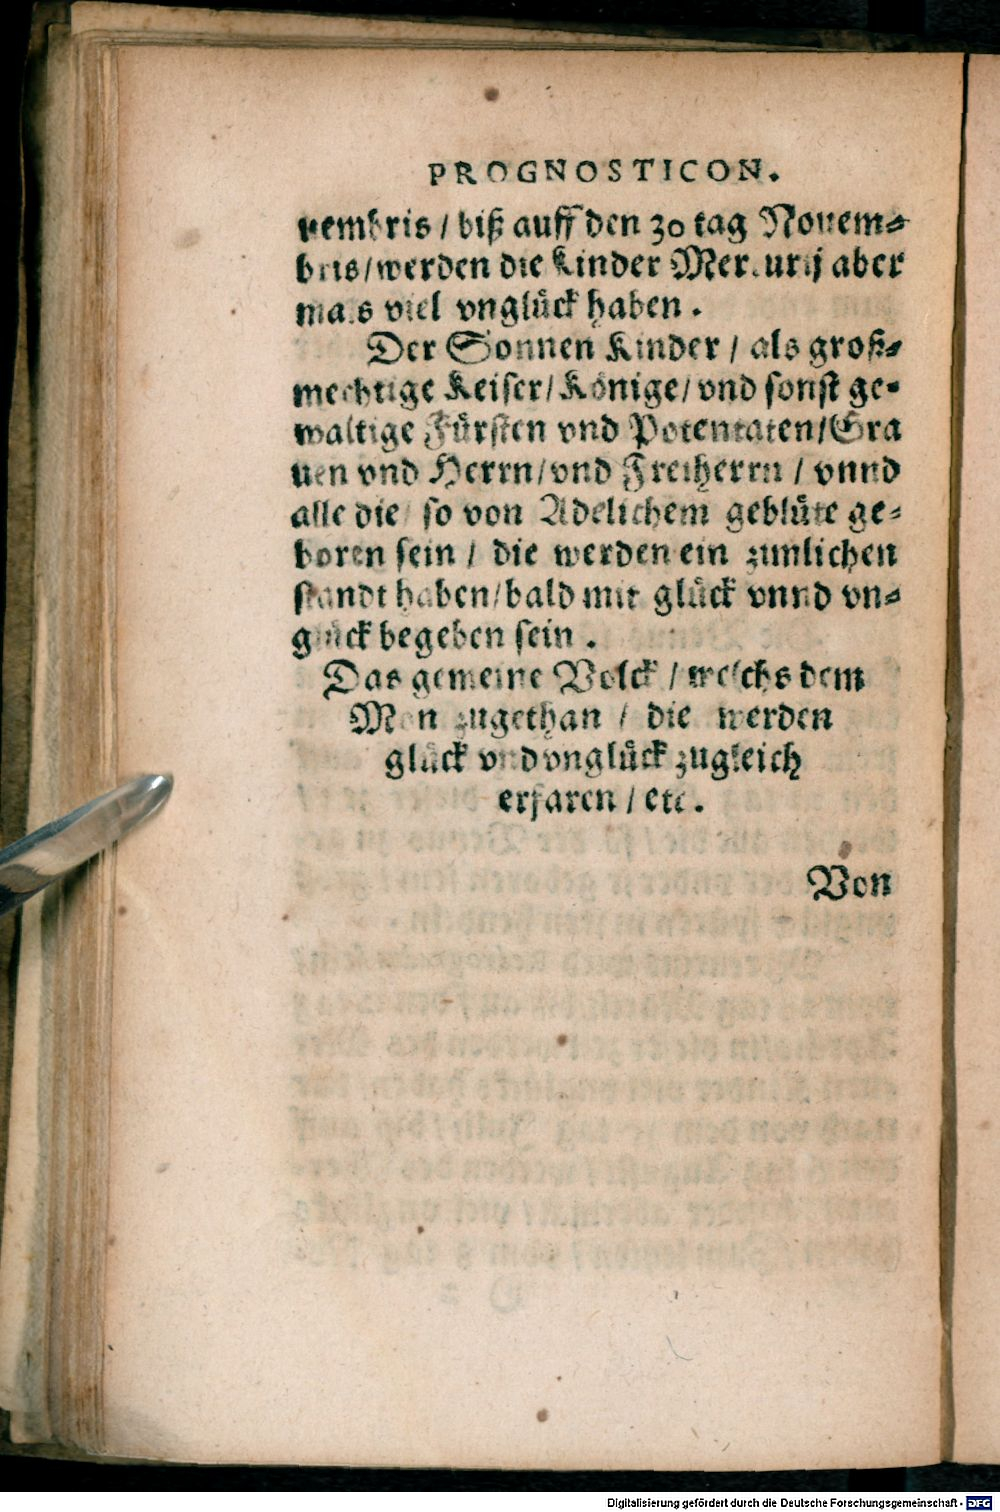 PROGNOSTICON.
vembris / biß auff den 30 tag Nouem⸗
bris/werden die Kinder Mercurij aber
mals viel vnglück haben .
Der Sonnen Kinder / als groß⸗
mechtige Keiser/Könige/vnd sonst ge⸗
waltige Fürsten vnd Potentaten/Gra
uen vnd Herrn/vnd Freiherrn / vnnd
alle die/ so von Adelichem geblüte ge⸗
boren sein / die werden ein zimlichen
standt haben/bald mit glück vnnd vn⸗
glück begeben sein .
Das gemeine Volck / welchs dem
Mon zugethan / die werden
glück vnd vnglück zugleich
erfaren / etc .
Von
Digitalisierung gefördert durch die Deutsche Forschungsgemeinschaft - DFG